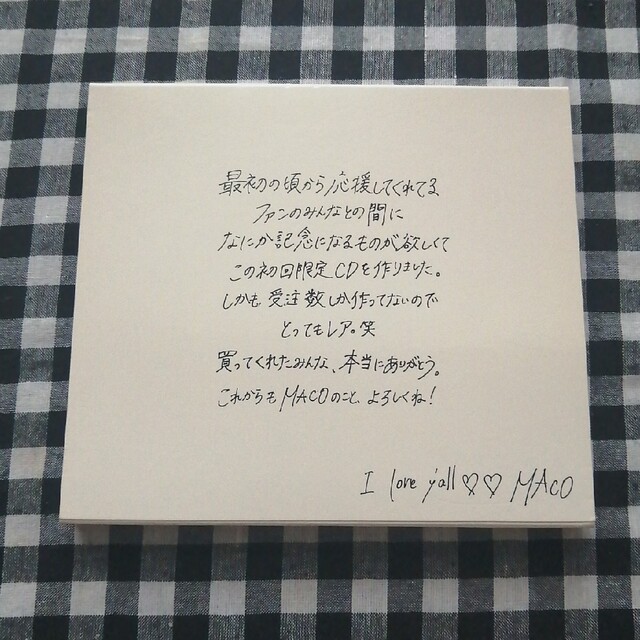 最初の頃から応援してくれてる
ファンのみんなとの間に
なにか記念になるものが欲しくて
この初回限定CDを作りました。
しかも受注数しか作ってないので
とってもレア。笑
買ってくれたみんな、本当にありがとう。
これからもMACOのこと、よろしくね!
I love y'all♡♡ MACO